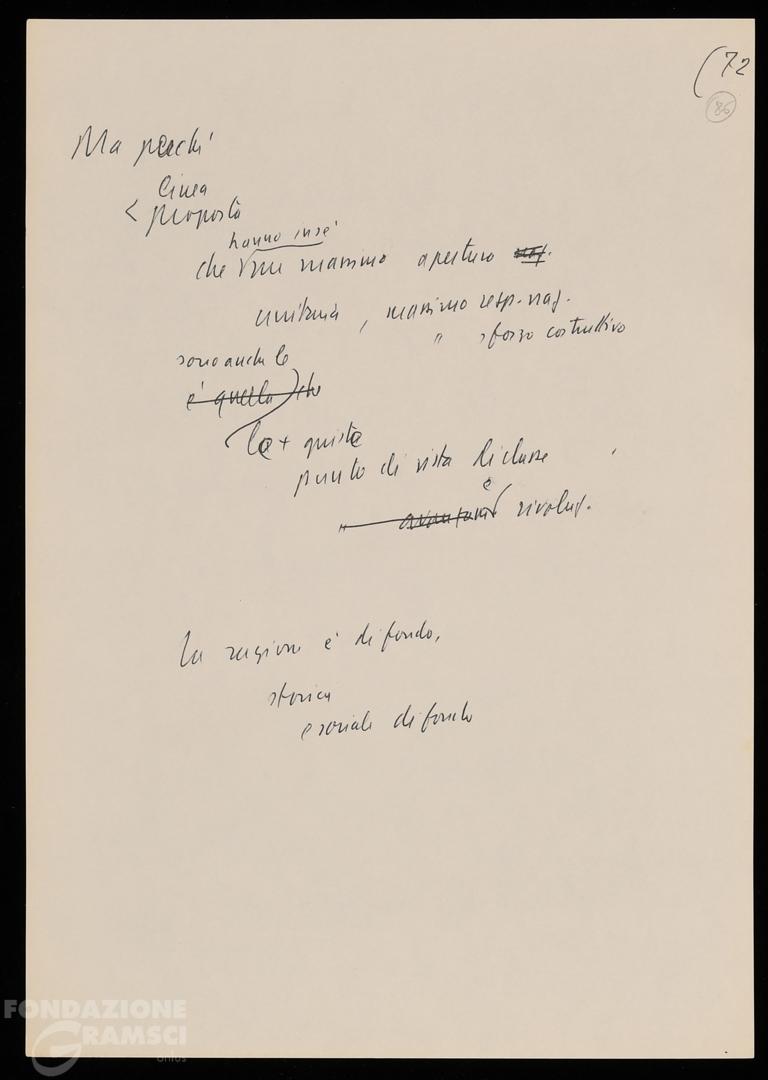 (72
86
Ma perché
linea
< proposta
hanno in sé
che una massima apertura naz.
unitaria, massimo resp. naz.
" sforzo costruttivo
sono anche le
è quella che
le + giuste
punto di vista di classe
" avanzam. e rivoluz.
La ragione è di fondo,
storica
e sociale di fondo
FONDAZIONE
GRAMSCI
onlus